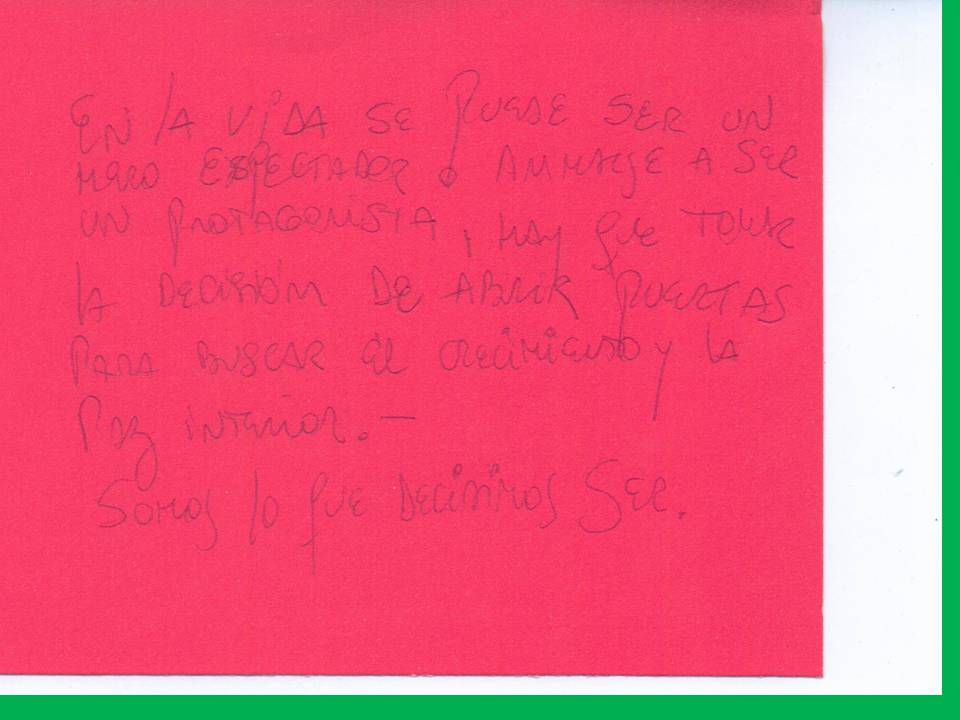 EN LA VIDA SE PUEDE SER UN
MERO ESPECTADOR O ANIMARSE A SER
UN PROTAGONISTA, HAY QUE TOMAR
LA DECISIÓN DE ABRIR PUERTAS
PARA BUSCAR EL CRECIMIENTO Y LA
PAZ INTERIOR.—
SOMOS LO QUE DECIDIMOS SER.